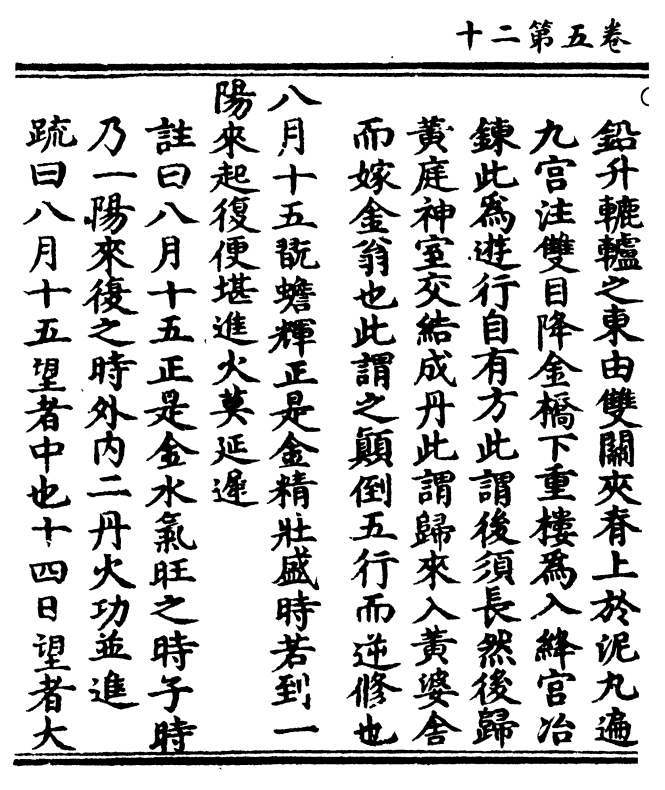 卷五第二十
鉛升轆轤之東由雙關夾脊上於泥丸遍
九宮注雙目降金橋下重樓為入絳宮冶
鍊此為遊行自有方此謂後須長然後歸
黃庭神室交結成丹此謂歸來入黃婆舍
而嫁金翁也此謂之顛倒五行而逆修也
八月十五翫蟾輝正是金精壯盛時若到一
陽來起復便堪進火莫延遲
註曰八月十五正是金水氣旺之時子時
乃一陽來復之時外內二丹火功並進
疏曰八月十五望者中也十四日望者大